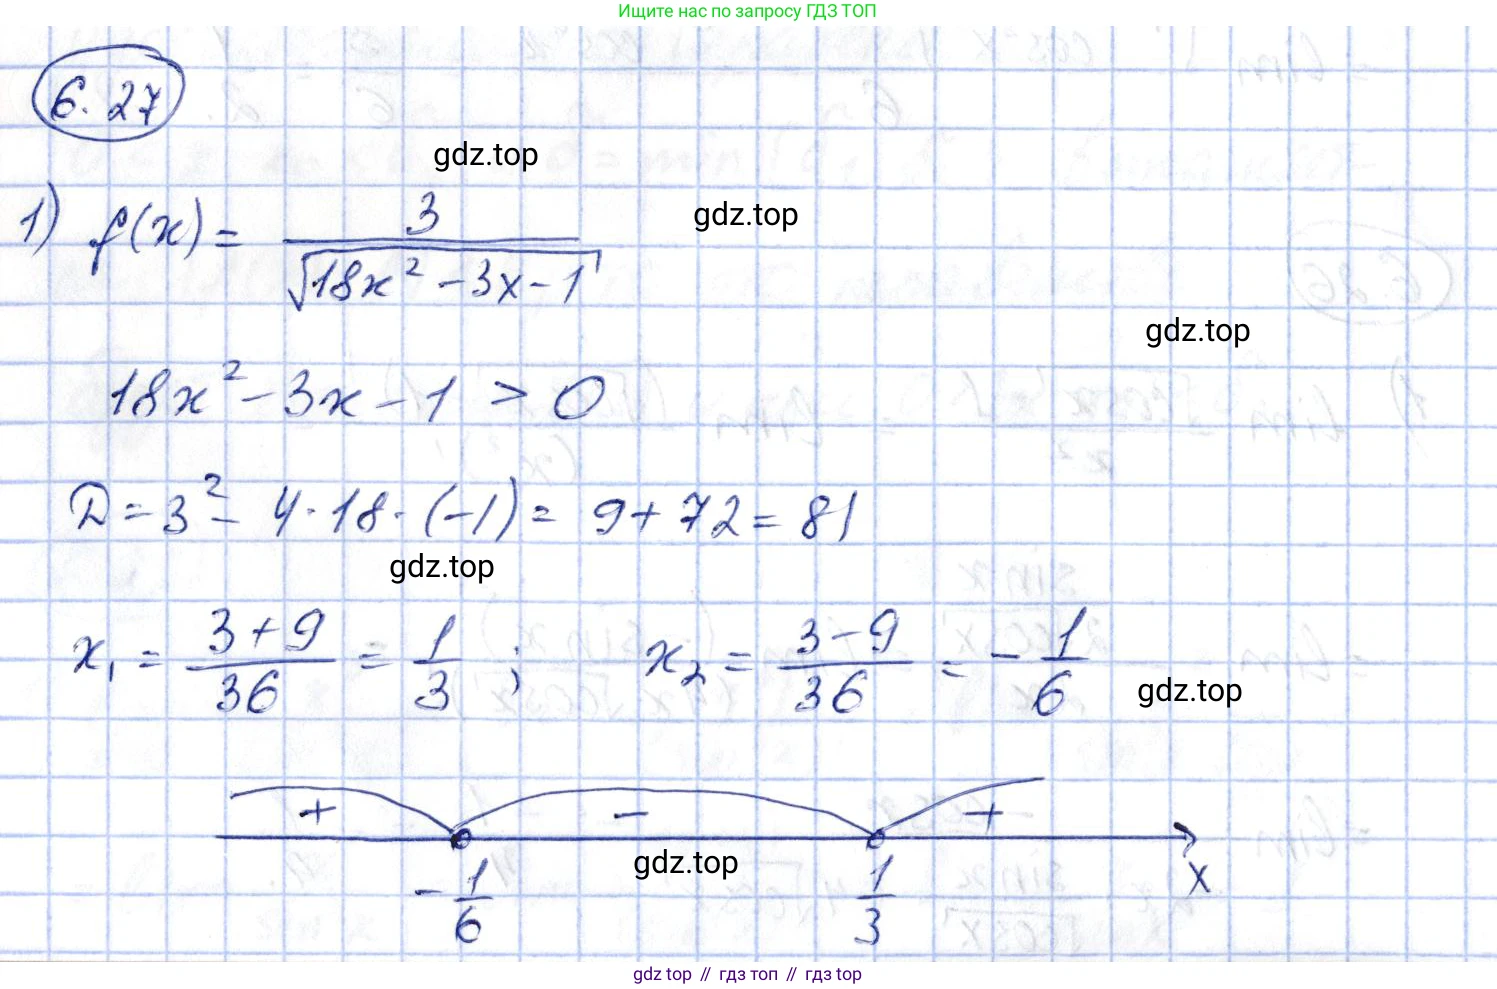 Ищите нас по запросу ГДЗ ТОП
6.27
gdz.top
1) f(x) = 3/√(18x² - 3x - 1)
gdz.top
gdz.top
18x² - 3x - 1 > 0
D = 3² - 4·18·(-1) = 9 + 72 = 81
gdz.top
x₁ = (3+9)/36 = 1/3 ; x₂ = (3-9)/36 = -1/6
gdz.top
+ - +
gdz.top
-1/6 1/3 x
gdz top // гдз топ // гдз top